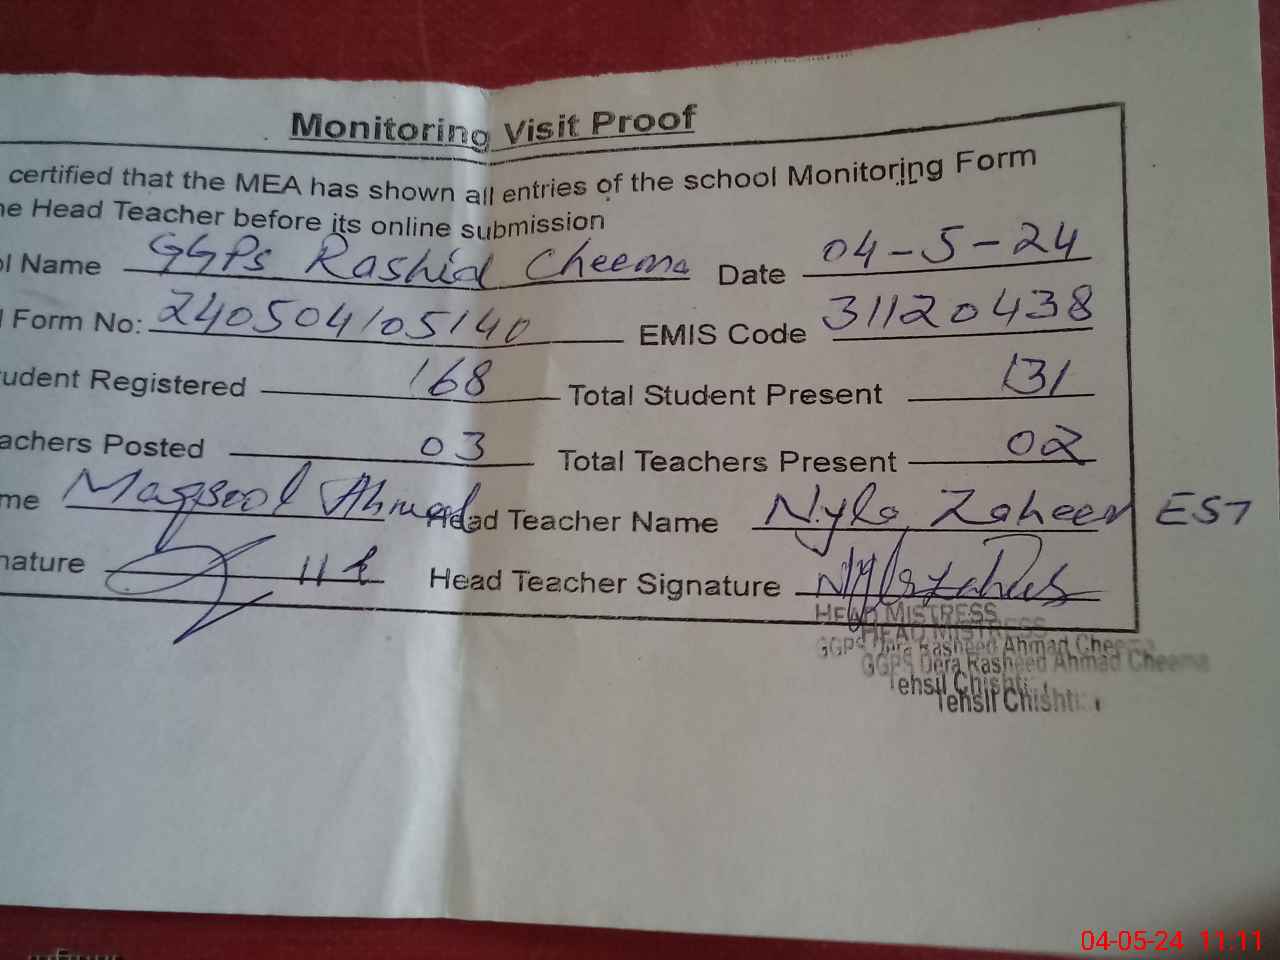 Monitoring Visit Proof
certified that the MEA has shown all entries of the school Monitoring Form
Head Teacher before its online submission
Name GGPs Rashid Cheema Date 04-5-24
Form No: 240504105140 EMIS Code 31120438
Registered 168 Total Student Present 131
Posted 03 Total Teachers Present 02
Maqsool Ahmad Head Teacher Name Nyla Zaheer EST
Head Teacher Signature
HEAD MISTRESS
HEAD MISTRESS
GGPS Dera Rasheed Ahmad
GGPS Dera Rasheed Ahmad Cheema
Tehsil
Tehsil
04-05-24 11:11